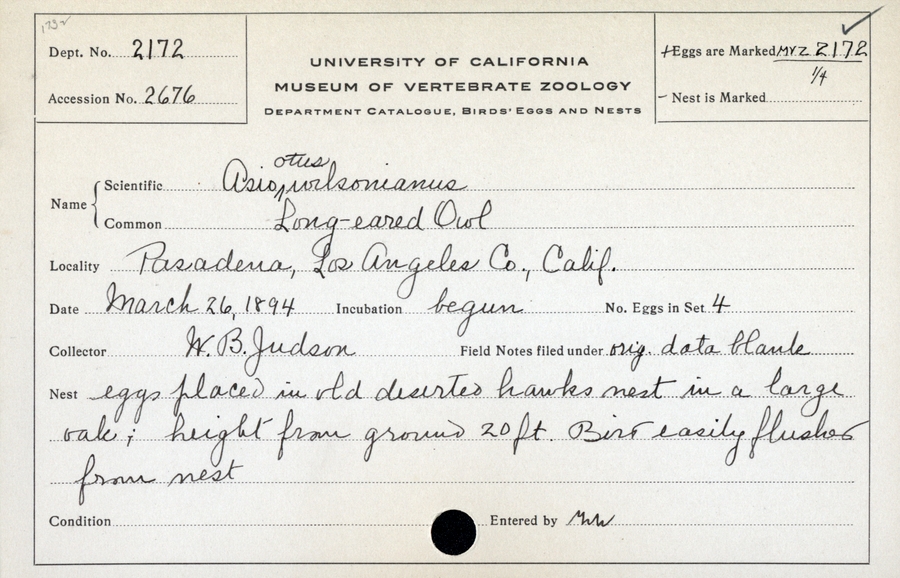 1732
Dept. No. 2172
Accession No. 2676
UNIVERSITY OF CALIFORNIA
MUSEUM OF VERTEBRATE ZOOLOGY
DEPARTMENT CATALOGUE, BIRDS' EGGS AND NESTS
+Eggs are Marked MVZ 2172
1/4
- Nest is Marked
otus
Name Scientific Asio wilsonianus
Common Long-eared Owl
Locality Pasadena, Los Angeles Co., Calif.
Date March 26, 1894 Incubation begun No. Eggs in Set 4
Collector W. B. Judson Field Notes filed under orig. data blank
Nest eggs placed in old deserted hawks nest in a large
oak; height from ground 20 ft. Bird easily flushed
from nest
Condition Entered by